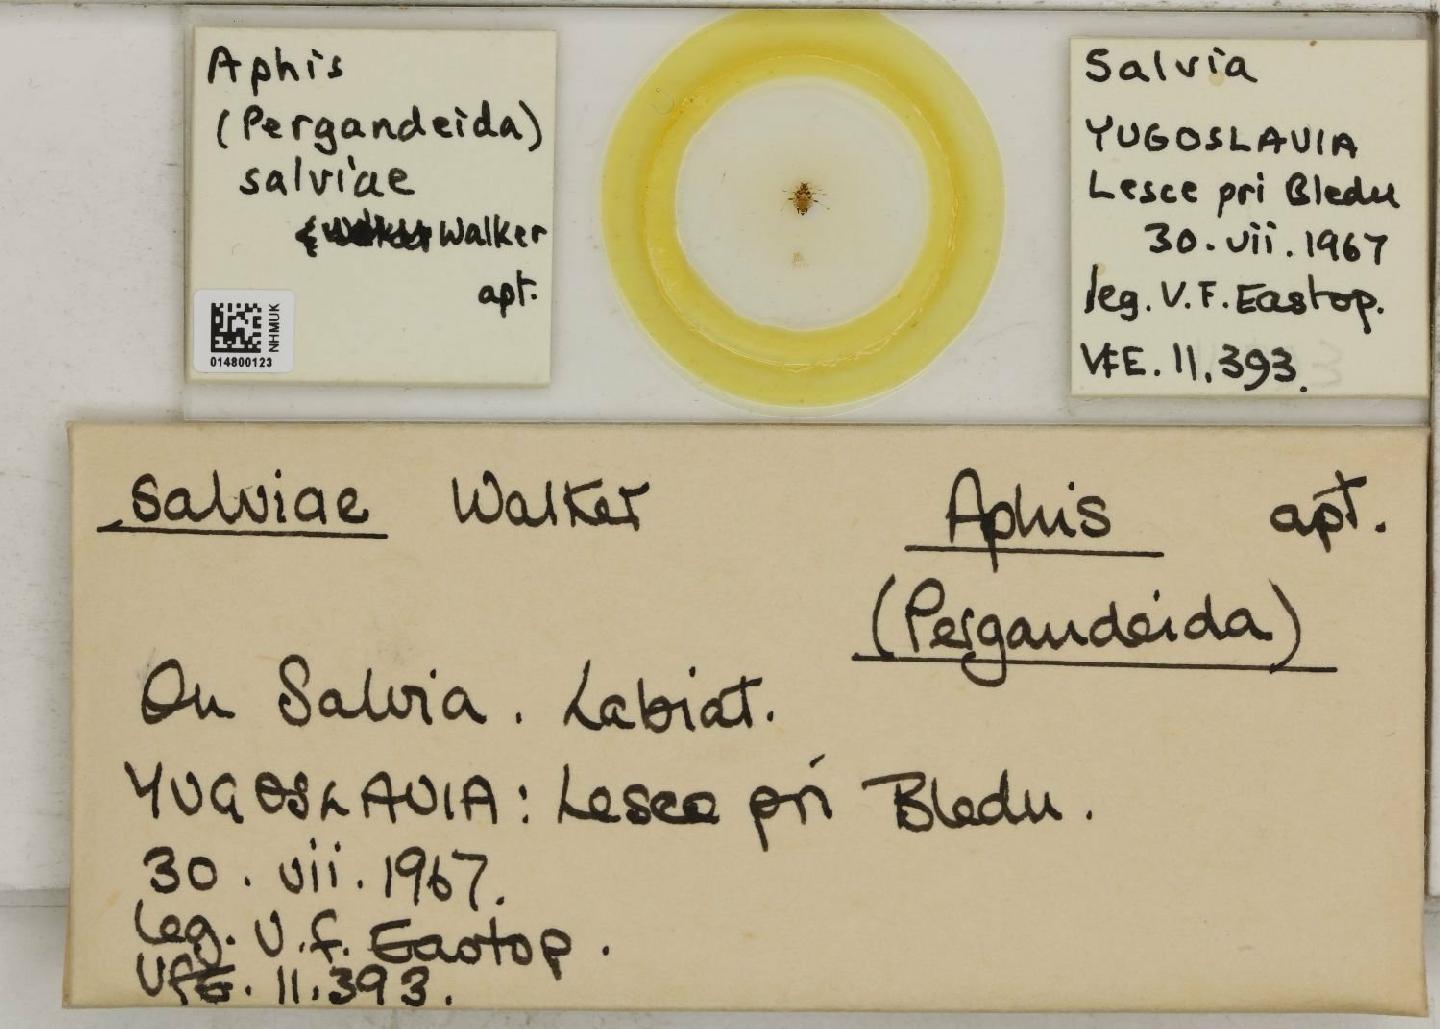 Aphis
(Pergandeida)
salviae
Walker
apt.
NHMUK
014800123
Salvia
YUGOSLAVIA
Lesce pri Bledu
30.vii.1967
leg. V.F. Eastop.
VFE. 11,393.
salviae Walker Aphis apt.
(Pergandeida)
On Salvia. Labiat.
YUGOSLAVIA: Lesce pri Bledu.
30.vii.1967.
leg. V.F. Eastop.
VFE. 11,393.